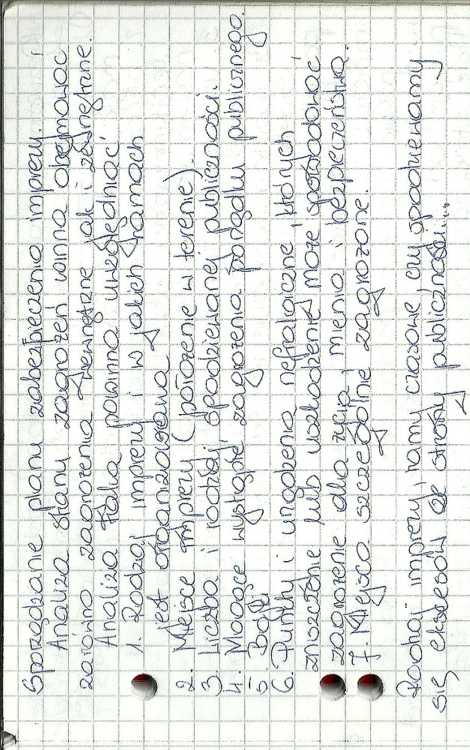 Sporządzanie planu zabezpieczenia imprezy.
Analiza stanu zagrożeń winna obejmować
zarówno zagrożenia wewnętrzne jak i zewnętrzne.
Analiza taka powinna uwzględniać
1. Rodzaj imprezy i w jakich ramach
jest organizowana
2. Miejsce imprezy (położenie w terenie).
3. Liczba i rodzaj spodziewanej publiczności.
4. Mogące wystąpić zagrożenia porządku publicznego.
5
6. Punkty i urządzenia których
zniszczenie lub uszkodzenie może spowodować
zagrożenie dla życia, mienia i bezpieczeństwa.
7. Miejsca szczególnie zagrożone.
Rodzaj imprezy, ramy czasowe czy spodziewamy
się ekscesów ze strony publiczności...